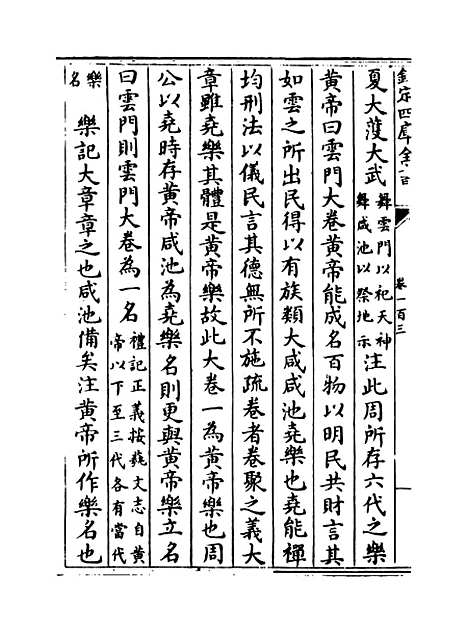 欽定四庫全書
卷一百三
夏大濩大武舞雲門以祀天神舞咸池以祭地示注此周所存六代之樂
黃帝曰雲門大卷黃帝能成名百物以明民共財言其
如雲之所出民得以有族類大咸咸池堯樂也堯能禪
均刑法以儀民言其德無所不施疏卷者卷聚之義大
章雖堯樂其體是黃帝樂故此大卷一為黃帝樂也周
公以堯時存黃帝咸池為堯樂名則更與黃帝樂立名
曰雲門則雲門大卷為一名禮記正義按藝文志自黃帝以下至三代各有當代
樂名 樂記大章章之也咸池備矣注黃帝所作樂名也